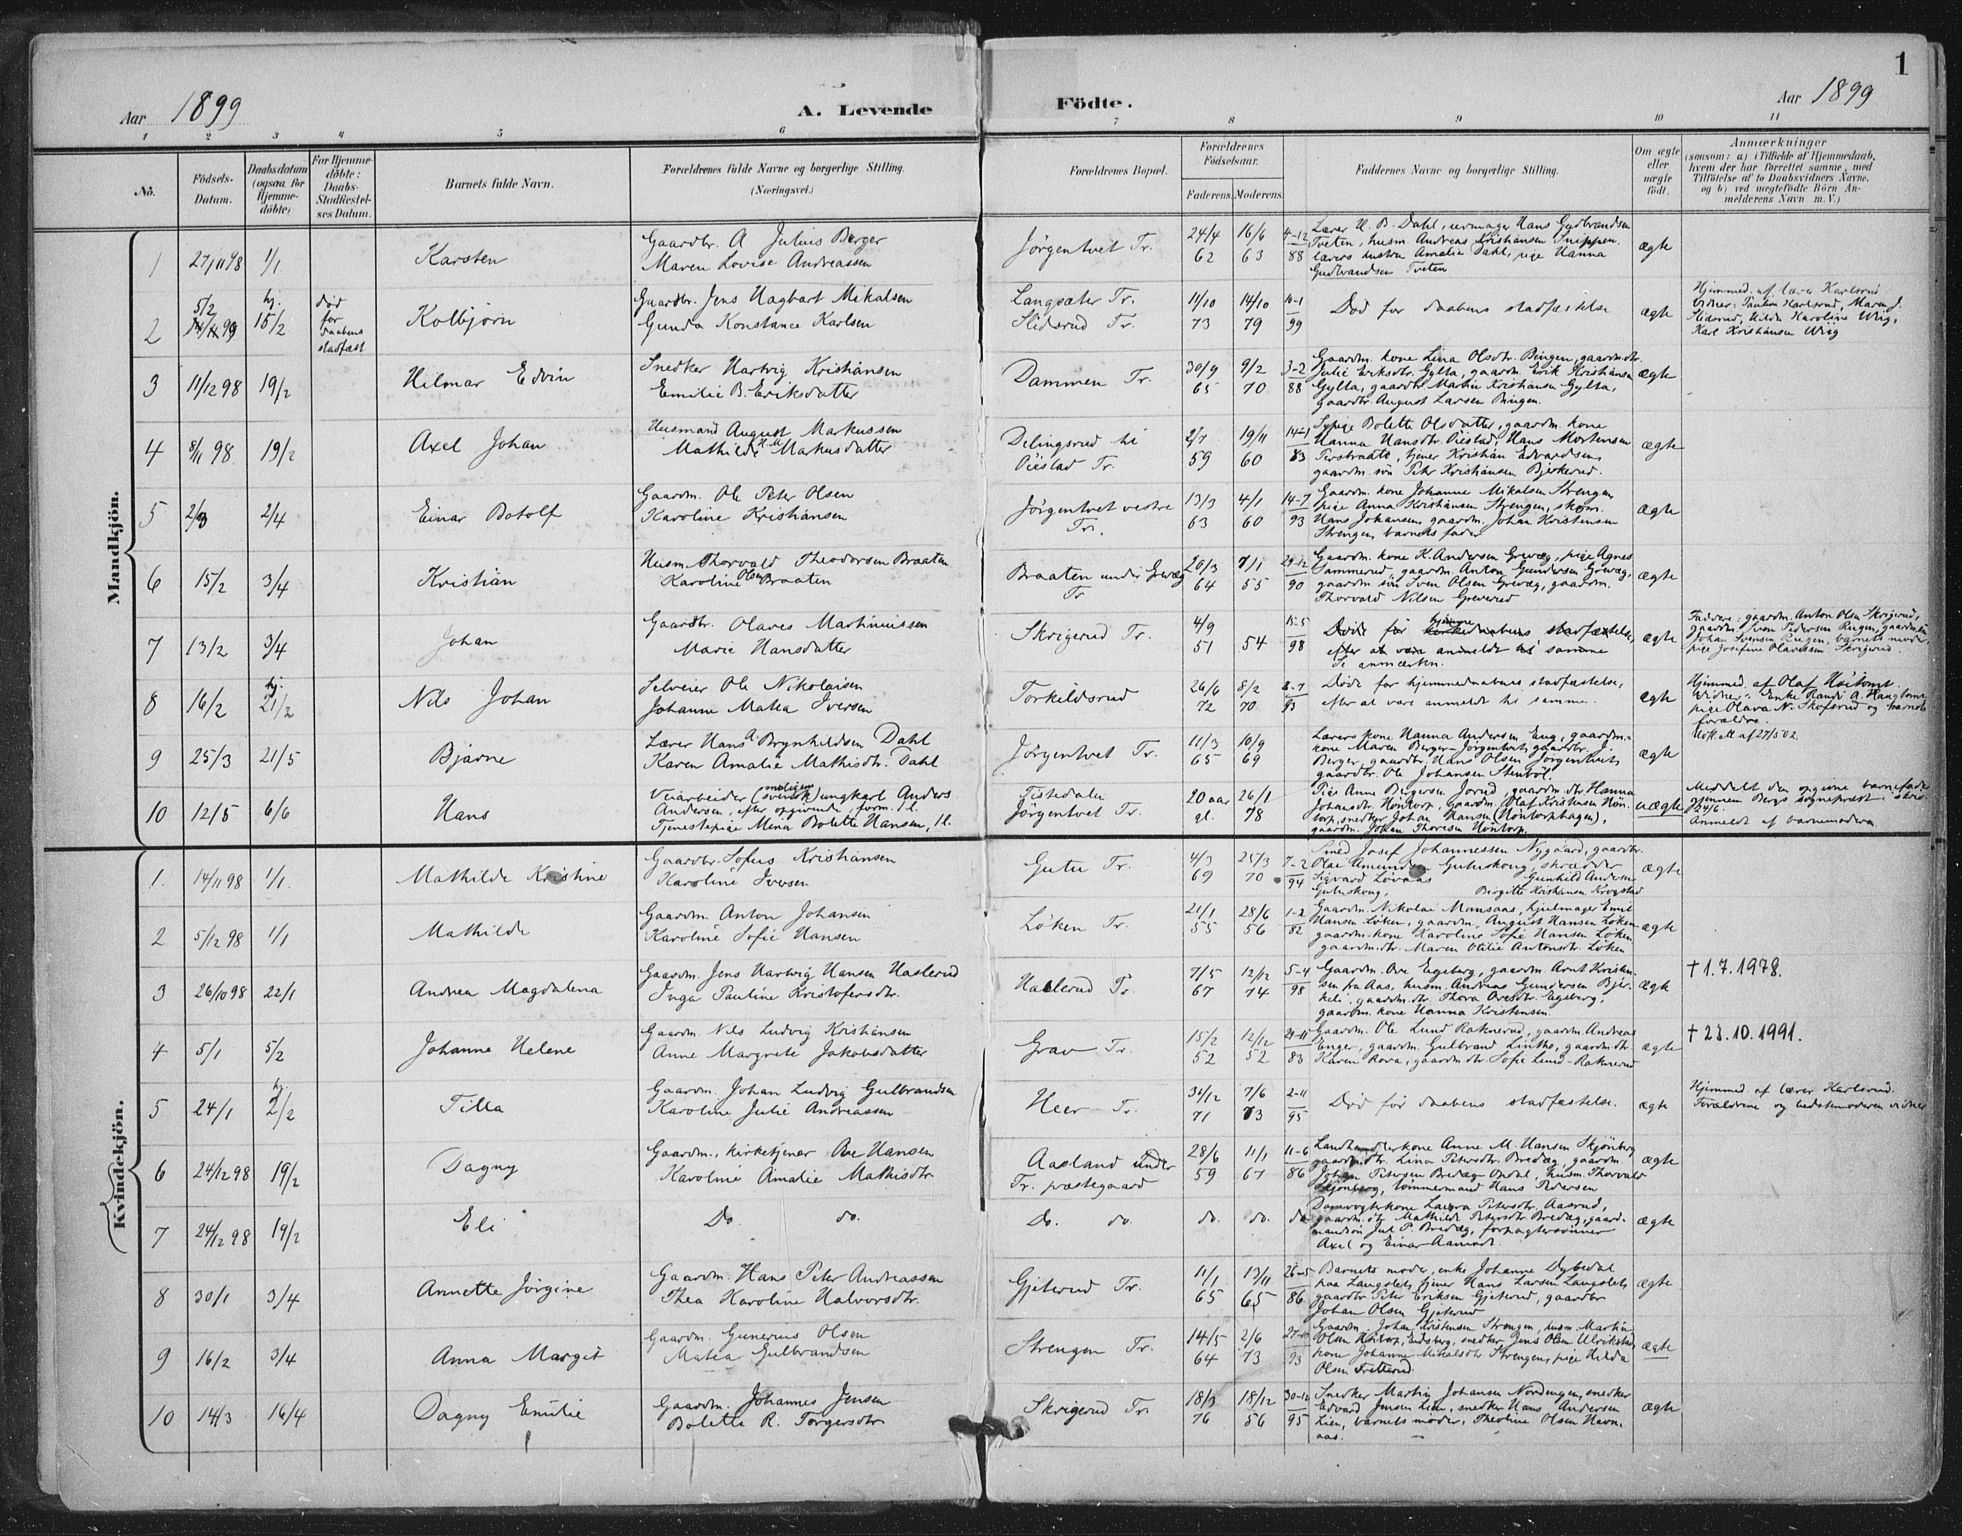 1
Aar 1899
A. Levende
Födte.
Aar 1899
1 2 3 4 5 6 7 8 9 10 11
No.
Födsels-Datum.
Daabsdatum (ogsaa for Hjemme-döbte)
For Hjemme-döbte: Daabs-Stadfæstel-ses Datum.
Barnets fulde Navn.
Forældrenes fulde Navne og borgerlige Stilling.
(Næringsvei.)
Forældrenes Bopæl.
Forældrenes Födselsaar.
Faderens. Moderens.
Faddernes Navne og borgerlige Stilling.
Om ægte eller uægte födt.
Anmærkninger
(saasom: a) i Tilfælde af Hjemmedaab,
hvem der har forrettet samme, med
Tilföielse af to Daabsvidners Navne,
og b) ved uægtefödte Börn An-
melderens Navn m.V.)
Mandkjön.
1 27/11 98 1/1 Karsten
Gaardbr. A Julius Berger
Maren Lovise Andreassen
Jörgentvet Tr.
24/4 62 16/6 63 4-12 88
Lærer H. B. Dahl, urmager Hans Gudbrandsen
Tveten, husm. Andreas Kristiansen Snippen
lærers hustru Amalie Dahl, pige Hanna
Gudbrandsen Tveten
ægte
2 5/2 99 hj. 15/2
död for daabens stadfæst.
Kolbjörn
Gaardbr. Jens Hagbart Mikalsen
Gunda Konstance Karlsen
Langsæter Tr.
Slidsrud Tr.
11/10 73 14/10 79 10-1 99
Död for daabens stadfæstelse
ægte
Hjemmed. af lærer Karlsrud
Vidner: Pauline Karlsrud, Maren J.
Slidsrud, Hilda Karoline Wiig,
Karl Kristiansen Wiig
3 11/12 98 19/2 Hilmar Edvin
Snedker Hartvig Kristiansen
Emilie B. Eriksdatter
Dammen Tr.
30/9 65 9/2 70 3-2 88
Gaardm. kone Lina Olsdtr. Bingen, gaardm. dtr.
Julie Eriksdtr. Gylta, gaardm. Erik Kristiansen
Gylta, gaardbr. Martin Kristiansen Gylta,
gaardbr. August Larsen Bingen.
ægte
4 8/11 98 19/2 Axel Johan
Husmand August Markussen
Mathilde H. M. Markusdatter
Delingsrud til
Öiestad Tr.
2/7 59 19/11 60 14-1 83
Sypige Bolette Olsdatter, gaardm. kone
Hanna Hansdtr. Öiestad, Hans Mortensen
tjener Kristian Edvardsen,
gaardm. sön Peter Kristiansen Bjerkerud.
ægte
5 2/3 2/4 Einar Botolf
Gaardm. Ole Peter Olsen
Karoline Kristiansen
Jörgentvet vestre
Tr.
13/3 63 4/1 60 14-7 93
Gaardm. kone Johanne Mikalsen Strengen,
pige Anna Kristiansen Strengen, skom.
Hans Johansen, gaardm. Johan Kristensen
Strengen, barnets fader
ægte
6 15/2 3/4 Kristian
Husm. Thorvald Theodorsen Braaten
Karoline Olsen Braaten
Braaten under Grevæg
Tr
20/3 64 7/1 55 29-12 90
Gaardm. kone K. Andersen Grevæg, pige Agnes
Sammerud, gaardm. Anton Gundersen Grevæg,
gaardm. sön Sven Olsen Grevæg, gaardm.
Thorvald Nilsen Greverud
ægte
7 13/2 3/4 Johan
Gaardbr. Olaves Martiniussen
Marie Hansdatter
Skrigerud Tr.
4/9 51 54 15-5 98
Döde för hjemmedaabens stadfæstelse,
efter at være anmeldt til samme
Se anmærkn.
ægte
Faddere: gaardm. Anton Olsen Skrigerud,
gaardm. Sven Pedersen Ringen, gaardm.sön
Johan Svensen Ringen, barnets moder,
pige Josefine Olavesen Skrigerud.
8 16/2 hj. 21/2 Nils Johan
Selveier Ole Nikolaisen
Johanne Matea Iversen
Torkildsrud
26/6 72 8/2 70 8-7 93
Döde for hjemmedaabens stadfæstelse,
efter at være anmeldt til samme.
ægte
Hjemmed. af Olaf Höitomt.
Vidner: Enke Randi A. Haugtomt
pige Olava N. Skofsrud og barnets
forældre.
9 25/3 21/5 Bjarne
Lærer Hans A. Brynhildsen Dahl
Karen Amalie Mathisdtr. Dahl
Jörgentvet Tr.
11/3 65 10/9 69
Lærers kone Hanna Andersen Eng, gaardm.-
kone Maren Berger-Jörgentvet, gaardbr. J.
Berger, gaardbr. Hans Olsen Jörgentvet,
gaardbr. Ole Johansen Stenböl.
ægte
Udst. M af 27/5 02.
10 12/5 6/6 Hans
Veiarbeider (muligens svensk) ungkarl Anders
Andersen, efter opgivende, form. H.
Tjenestepige Mina Bolette Hansen, H.
Fistedalen
Jörgentvet Tr.
20 aar gl. 26/1 78
Pige Anne Bergersen Jorud, gaardm. dtr. Hanna
Johansdtr. Höntorp, gaardm. Olaf Kristensen Hön-
torp, snedker Johan Hansen (Höntorphagen),
gaardm. Johan Thoresen Höntorp.
uægte
Meddelt den opgivne barnefader
gjennem Bergs sogneprest i skriv.
24/6.
Anmeldt af barnemoderen
Kvindekjön.
1. 14/11 98 1/1. Mathilde Kristine
Gaardbr. Sofus Kristiansen
Karoline Iversen
Gutu Tr.
4/3 69 25/3 70 7-2 94
Smed Josef Johannessen Nygaard, gaardbr.
Olae Amundsen Gutuskoug, skrædder
Sigvard Lövaas Gunhild Andersen
Gutuskoug, Birgitte Kristiansen Krogstad
ægte
2 5/12 98 1/1 Mathilde
Gaardm. Anton Johansen
Karoline Sofie Hansen
Löken Tr.
21/1 55 28/6 56 1-2 82
Gaardm. Nikolai Monsaas, hjulmager Emil
Hansen Löken, gaardm. August Hansen Löken
gaardm. kone Karoline Sofie Hansen Löken
gaardm. dtr. Maren Otilie Antonsdtr. Löken
ægte
3 26/10 98 22/1 Andrea Magdalena
Gaardm. Jens Hartvig Hansen Haslerud
Inga Pauline Kristofersdtr.
Haslerud Tr.
7/5 67 12/12 74 5-4 98
Gaardm. Ove Egeberg, gaardm. Arnt Kristen-
sen fra Aas, husm. Andreas Gundersen Bjer-
keli, gaardm. dtr. Thora Ovesdtr. Egeberg,
gaardm. kone Hanna Kristensen
ægte
† 1.7.1978.
4 5/1 5/2 Johanne Helene
Gaardm. Nils Ludvig Kristiansen
Anne Margrete Jakobsdatter
Grav Tr.
15/2 52 12/12 52 29-11 83
Gaardm. Ole Lund Raknerud, gaardm. Andreas
Enger, gaardm. Gulbrand Lintho, gaardm. dtr.
Karen Kova, gaardm. dtr. Sofie Lund-Raknerud
ægte
† 23.10.1991.
5 24/1 hj. 2/2 Tilla
Gaardm. Johan Ludvig Gulbrandsen
Karoline Julie Andreassen
Heer Tr.
31/12 71 7/6 73 2-11 95
Död för daabens stadfæstelse.
ægte
Hjemmed. af lærer Karlsrud.
Forældrene og bedstemoderen vidner
6 24/12 98 19/2 Dagny
Gaardm., kirketjener Ove Hansen
Karoline Amalie Mathisdtr
Aasland under
Tr. præstegaard
28/6 59 11/1 67 11-6 86
Landhandlerkone Anne M. Hansen Skjönberg
gaardm. dtr. Lina Petersdtr. Bredæg, gaardm.
Johan Petersen Bredæg Opdal, husm. Thorvald
Skjönberg, tömmermand Hans Pedersen
ægte
7 24/12 98 19/2 Eli
Do. do.
Do. do. do. do. do
Damvogterkone Laura Petersdtr. Aasrud,
gaardm. dtr Mathilde Petersdtr Bredæg, gaard-
mandsön Jul P. Bredæg, forpagtersönner
Axel og Einar Aamodt.
ægte
8 30/1 3/4 Annette Jörgine
Gaardm. Hans Peter Andreassen
Thea Karoline Halvorsdtr.
Gjeterud Tr.
11/1 65 13/11 65 26-5 86
Barnets moder, enke Johanne Dybedal
paa Langslets, tjener Hans Larsen Langslets
gaardbr. Peter Eriksen Gjeterud, gaardbr
Johan Olsen Gjeterud
ægte
9 16/2 3/4 Anna Margit
Gaardm. Gunerius Olsen
Matea Gulbrandsen
Strengen Tr.
14/5 64 2/6 73 93
Gaardm. Johan Kristensen Strengen, husm. Martin
Olsen Hörtorp, Eidsberg, snedker Jens Olsen Ulrikstad,
kone Johanne Mikalsdtr. Strengen, pige Hilda
Olsen Fretterud.
ægte
10 14/3 16/4 Dagny Emilie
Gaardm. Johannes Jensen
Bolette R. Torgersdtr
Skrigerud Tr.
18/3 76 18/12 56 30-12 95
Snedker Martin Johansen Nordengen, snedker
Edvard Jensen Lien, snedker Hans Andersen
Lien, barnets moder, Theoline Olsen Havn-
aas.
ægte